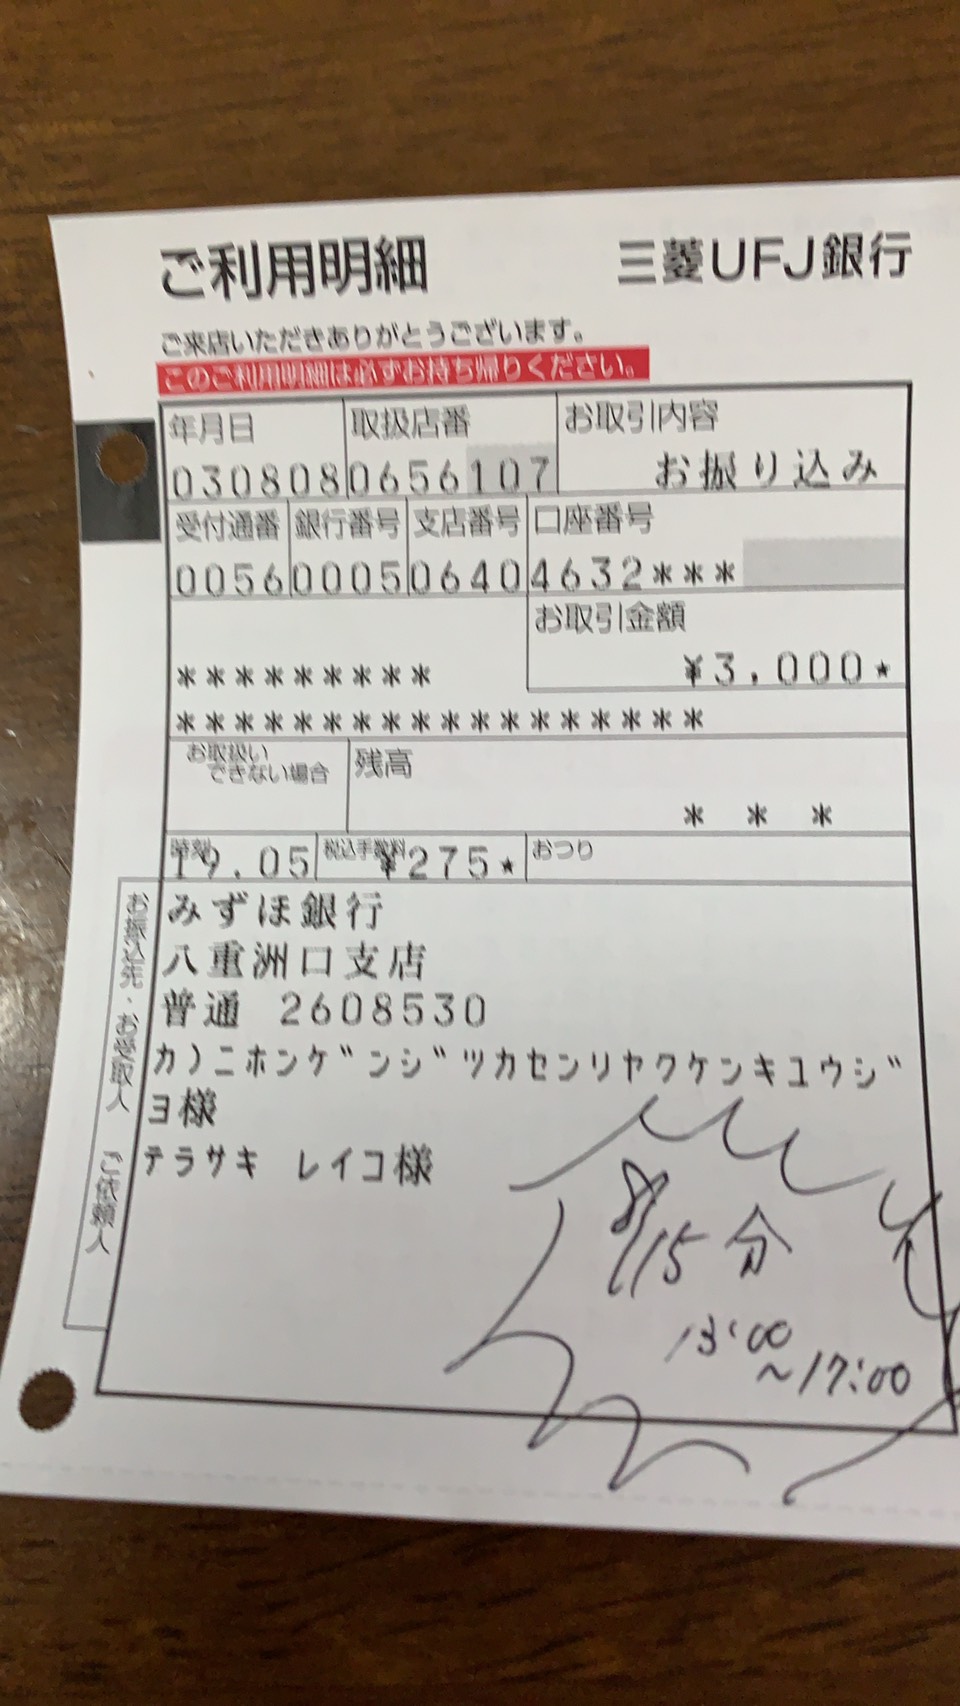 ご利用明細 三菱UFJ銀行
ご来店いただきありがとうございます。
このご利用明細は必ずお持ち帰りください。
年月日 取扱店番 お取引内容
030808 0656107 お振り込み
受付通番 銀行番号 支店番号 口座番号
0056 0005 0640 4632***
お取引金額
¥3,000★
*********
*******************
お取扱い
できない場合 残高
* * *
時刻 税込手数料 おつり
19.05 ¥275★
お振込先・お受取人 ご依頼人
みずほ銀行
八重洲口支店
普通 2608530
カ)ニホンゲンジツカセンリヤクケンキユウジ
ヨ様
テラサキ レイコ様
8/15分
13:00
~17:00